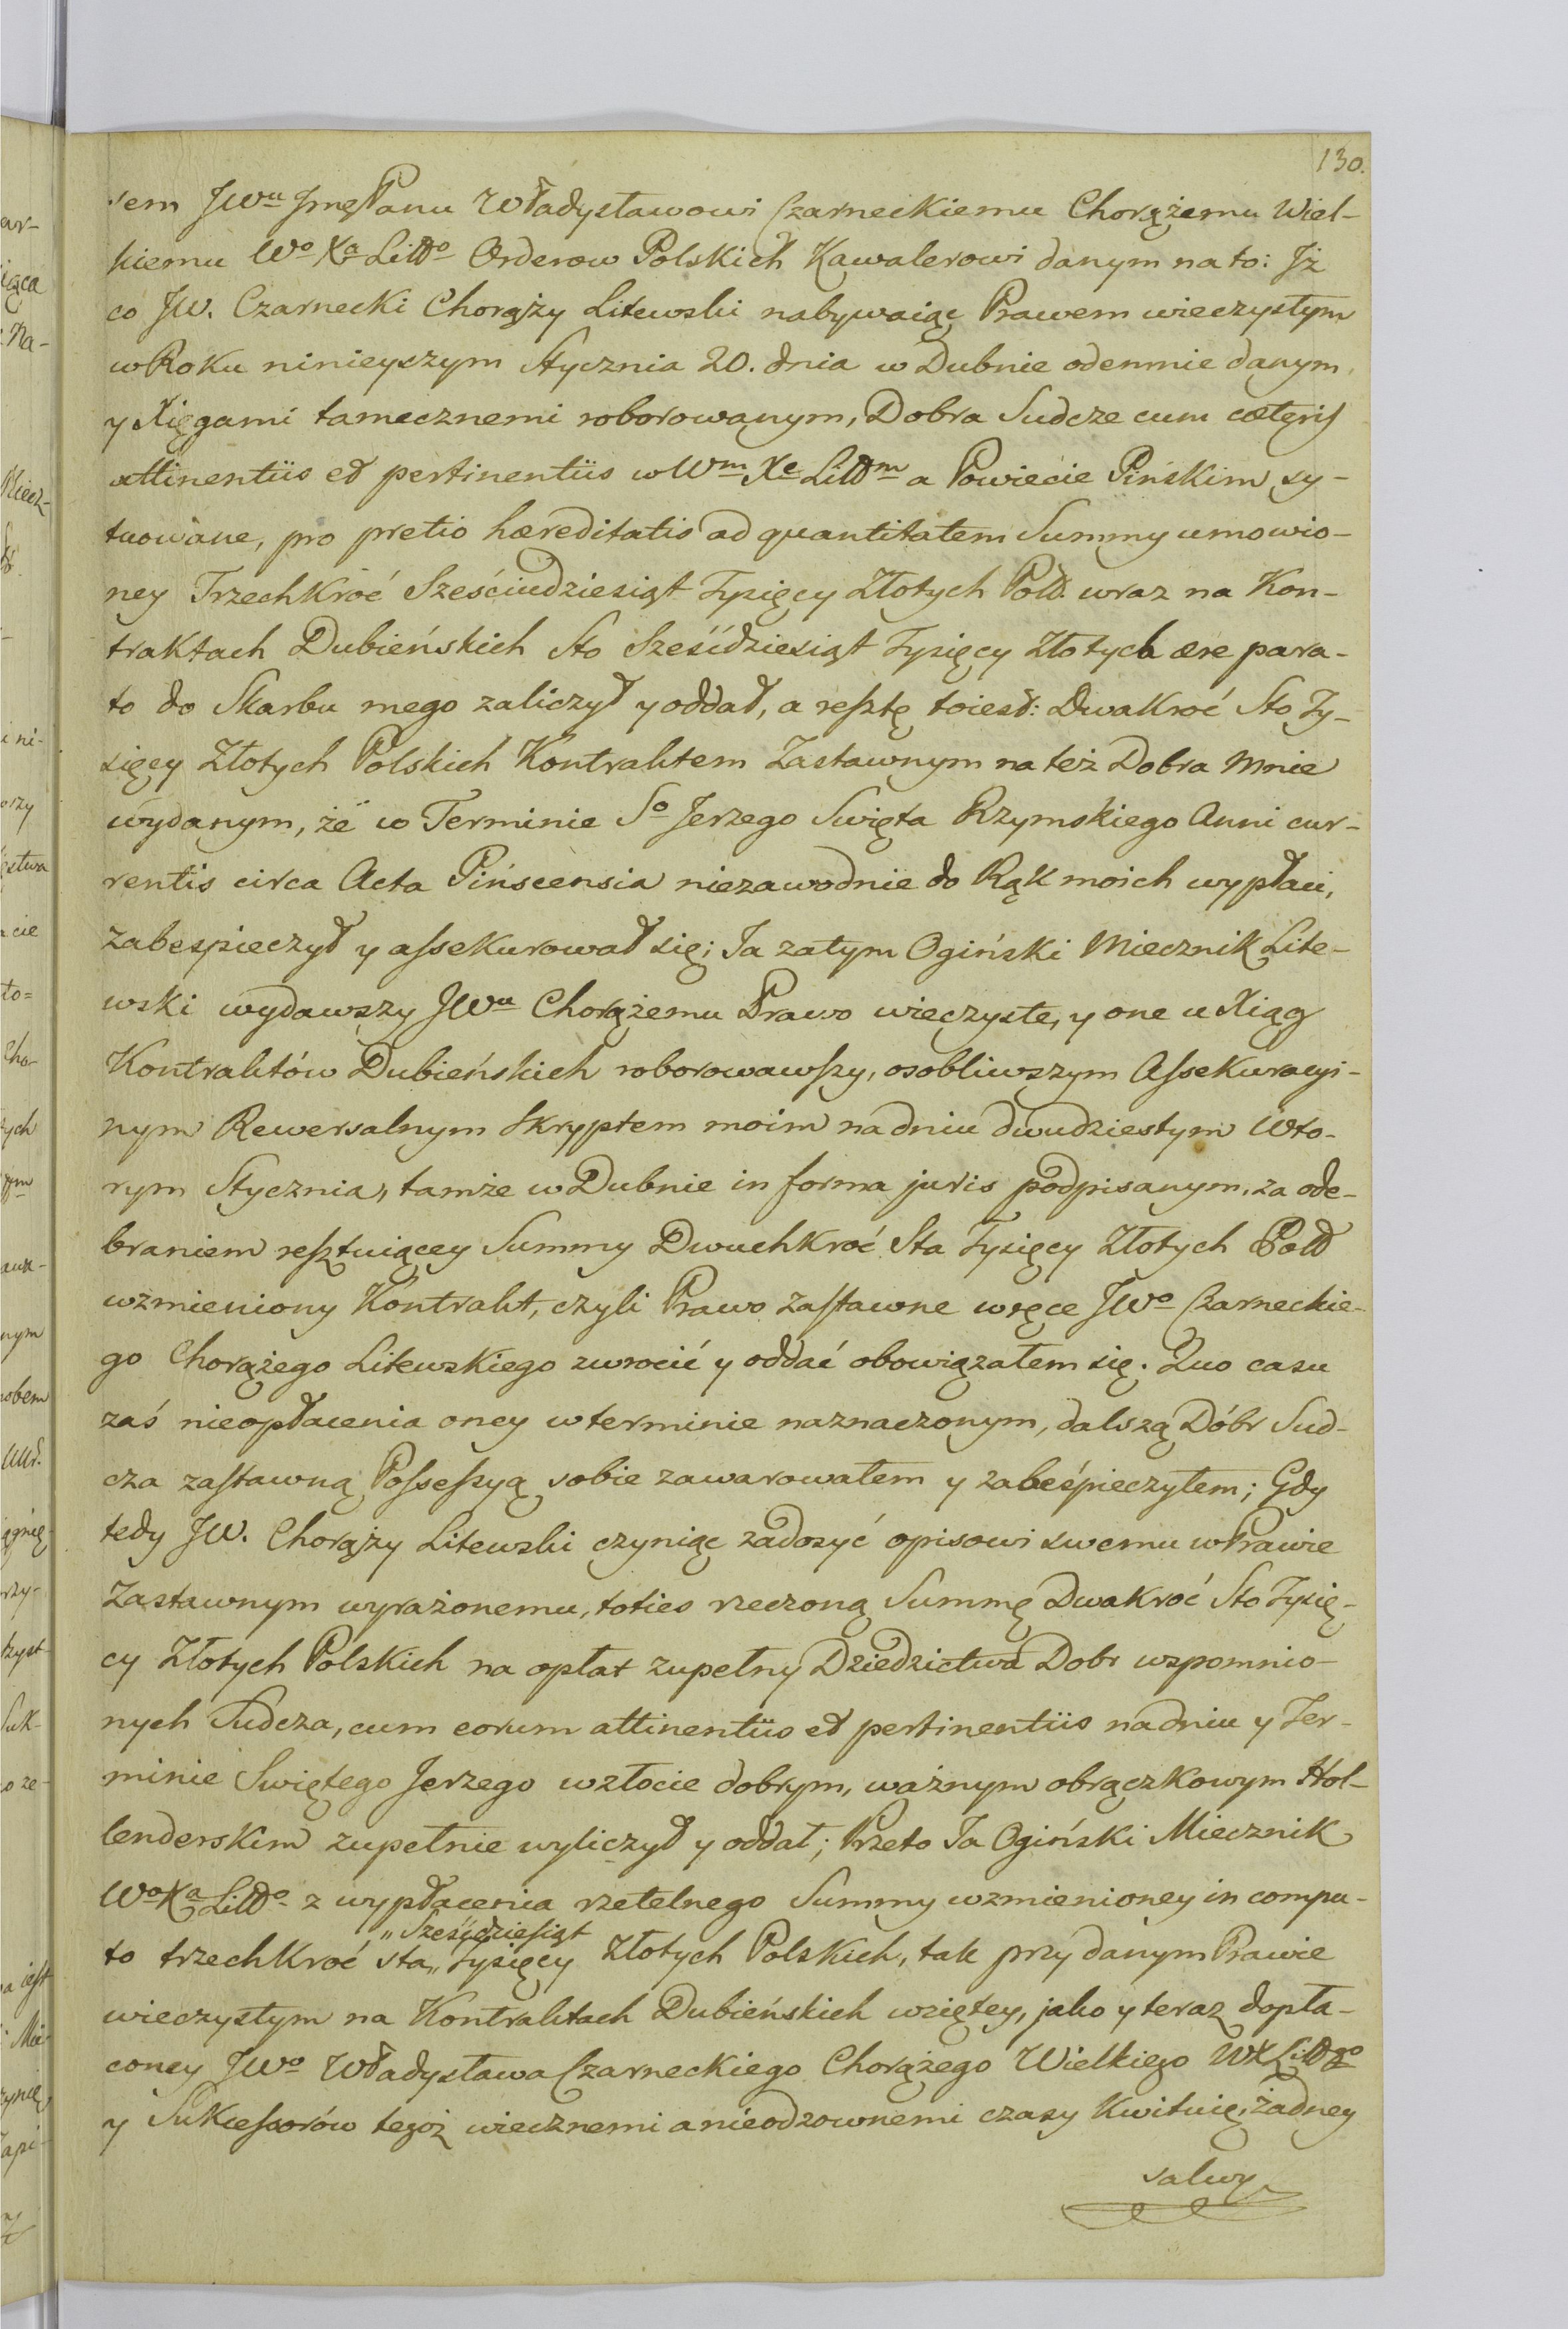 130.
sem JWu Jmę Panu Władysławowi Czarneckiemu Chorążemu Wiel-
kiemu Wo Xa Littgo Orderow Polskich Kawalerowi danym na to: Jż
co JW. Czarnecki Chorąży Litewski nabywaiąc Prawem wieczystym
w Roku ninieyszym Stycznia 20. dnia w Dubnie odemnie danym,
y Xięgami tamecznemi roborowanym, Dobra Sudcze cum cæteris
attinentiis et pertinentiis w Wm Xe Littm a Powiecie Pińskim sy-
tuowane, pro pretio hæreditatis ad quantitatem Summy umowio-
ney Trzechkroć Sześciudziesiąt Tysięcy Złotych Pold wraz na Kon-
traktach Dubieńskich Sto Sześćdziesiąt Tysięcy Złotych ære para-
to do Skarbu mego zaliczył y oddał, a resztę toiest: Dwakroć Sto Ty-
sięcy Złotych Polskich Kontraktem Zastawnym na też Dobra mnie
wydanym, że w Terminie So Jerzego Swięta Rzymskiego Anni cur-
rentis circa Acta Pinscensia niezawodnie do Rąk moich wypłaci,
zabespieczył y assekurował się; Ja zatym Ogiński Miecznik Lite-
wski wydawszy JWu Chorążemu Prawo wieczyste, y one u Xiąg
Kontraktów Dubieńskich roborowawszy, osobliwszym Assekuracyi-
nym Rewersalnym Skryptem moim na dniu dwudziestym Wto-
rym Stycznia, tamże w Dubnie in forma juris podpisanym, za ode-
braniem resztuiącey Summy Dwuchkroć Sta Tysięcy Złotych Pold
wzmieniony Kontrakt, czyli Prawo zastawne w ręce JWo Czarneckie-
go Chorążego Litewskiego zwrocić y oddać obowiązałem się. Quo casu
zaś nieopłacenia oney w terminie naznaczonym, dalszą Dóbr Sud-
cza zastawną Possessyą sobie zawarowałem y zabeśpieczyłem; Gdy
tedy JW. Chorąży Litewski czyniąc zadosyć opisowi swemu w Prawie
Zastawnym wyrażonemu, toties rzeczoną Summę Dwakroć Sto Tysię-
cy Złotych Polskich na opłat zupełny Dziedzictwa Dobr wspomnio-
nych Sudcza, cum eorum attinentiis et pertinentiis na dniu y Ter-
minie Swiętego Jerzego w złocie dobrym, ważnym obrączkowym Hol-
lenderskim zupełnie wyliczył y oddał; Przeto Ja Ogiński Miecznik
Wo Xa Littgo z wypłacenia rzetelnego Summy wzmienioney in compu-
„Sześćdziesiąt
to trzechkroć sta„ Tysięcy Złotych Polskich, tak przy danym Prawie
wieczystym na Kontraktach Dubieńskich wziętey, jako y teraz dopła-
coney JWo Władysława Czarneckiego Chorążego Wielkiego WX Littgo
y Sukcessorów tegoż wiecznemi a nieodzownemi czasy kwituię, żadney
salwy